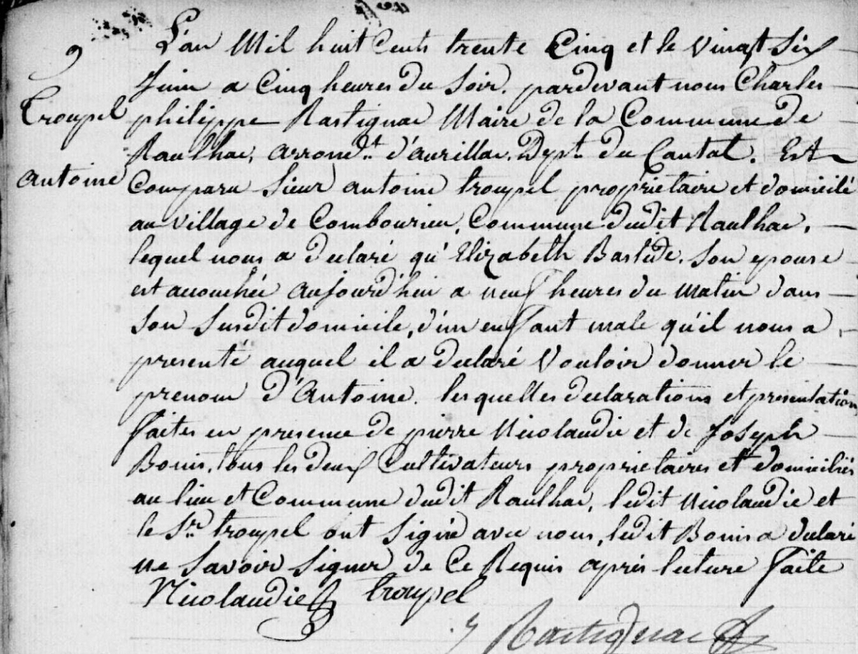 L'an Mil huit Cents trente Cinq et le vingt Six
9
Juin a Cinq heures du Soir, pardevant nous Charles
troupel
philippe Rastignac Maire de la Commune de
Raulhac, arrondt. d'aurillac, Dypt. du Cantal. Est
antoine
Comparu Sieur antoine troupel propriétaire et domicilié
au village de Combourieu, Commune dudit Raulhac,
lequel nous a declaré qu'Elizabeth Bastide, Son epouse
est accouchée aujourd'hui a neuf heures du matin dans
Son Susdit domicile, d'un enfant male qu'il nous a
presenté auquel il a declaré Vouloir donner le
prenom d'Antoine. les quelles declarations et presentation
faites en presence de pierre Nicolaudie et de Joseph
Bonis, tous les deux Cultivateurs propriétaires et domiciliés
au lieu et Commune dudit Raulhac, ledit Nicolaudie et
le Sr. troupel ont Signé avec nous, ledit Bonis a declaré
ne Savoir Signer de Ce Requis après lecture faite
Nicolaudie troupel
Rastignac